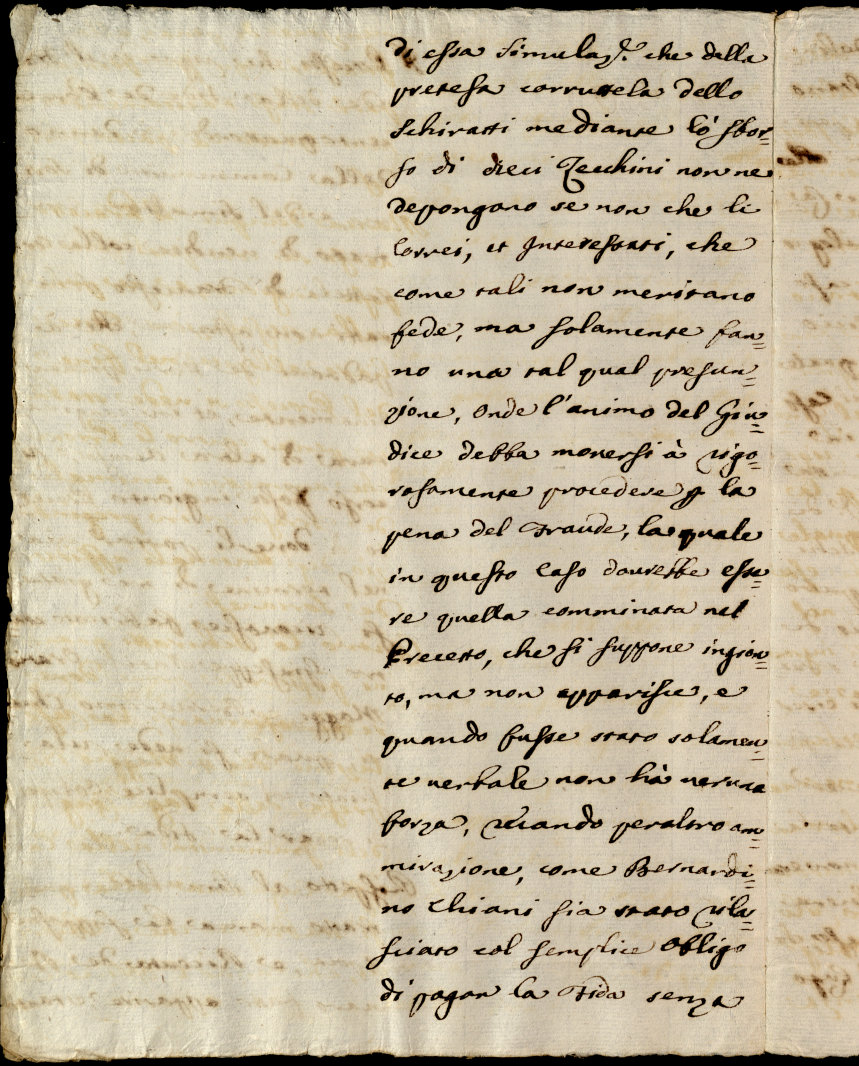 di essa simulaz.e che della
pretesa corruttela dello
Schiratti mediante lo sbor=
so di dieci Zecchini non ne
depongano se non che li
Correi, et Interessati, che
come tali non meritano
fede, ma solamente fan=
no una tal qual presun=
zione, onde l'animo del Giu=
dice debba moversi à rigo=
rosamente procedere p la
pena del Fraude, la quale
in questo Caso dourebbe esse=
re quella comminata nel
Precetto, che si suppone ingion=
to, ma non apparisce, e
quando fusse stato solamen=
te uerbale non hà ueruna
forza, recando peraltro am=
mirazione, come Bernardi=
no Chiani sia stato rila=
sciato col semplice obligo
di pagar la Fida senza